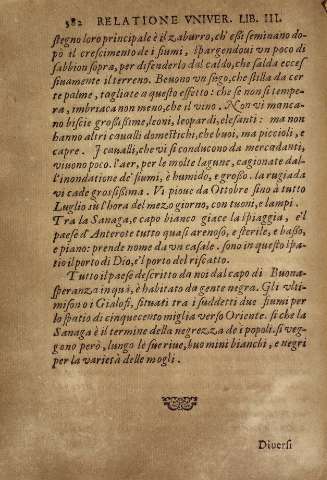 382 RELATIONE VNIVER. LIB. III.
stegno loro principale è il zaburro, ch'essi seminano do-
pò il crescimento de i fiumi, spargendoui vn poco di
sabbion sopra, per difenderlo dal caldo, che salda eccess
siuamente il terreno. Beuono vn sugo, che stilla da cer
te palme, tagliate a questo effetto: che se non si tempe-
ra, imbriaca non meno, che il vino. Non vi manca-
no biscie grossissime, leoni, leopardi, elefanti: ma non
hanno altri caualli domestichi, che buoi, ma piccioli, e
capre. I caualli, che vi si conducono da mercadanti,
viuono poco. l'aer, per le molte lagune, cagionate dal-
l'inondatione de' fiumi, è humido, e grosso. la rugiada
vi cade grossissima. Vi pioue da Ottobre sino à tutto
Luglio su l'hora del mezo giorno, con tuoni, e lampi.
Tra la Sanaga, e capo bianco giace la spiaggia, e'l
paese d'Anterote tutto quasi arenoso, e sterile, e basso,
e piano: prende nome da vn casale. sono in questo spa-
tio il porto di Dio, e'l porto del riscatto.
Tutto il paese descritto da noi dal capo di Buona-
speranza in quà, è habitato da gente negra. Gli vlti-
mi sono i Gialofi, situati tra i suddetti due fiumi per
lo spatio di cinquecento miglia verso Oriente. sì che la
Sanaga è il termine della negrezza de i popoli. si veg-
gono però, lungo le sue riue, huomini bianchi, e negri
per la varietà delle mogli.
Diuersi